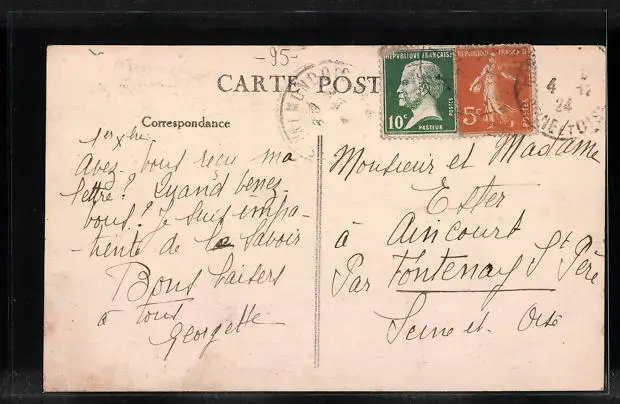 -95-
CARTE POST
Correspondance
REPUBLIQUE FRANÇAISE
10c
POSTES
PASTEUR
REPUBLIQUE FRANÇAISE
5c
POSTES
4
24
Avez-vous reçu ma
lettre? Quand venez-
vous? Je suis impa-
tiente de le savoir
Bons baisers
à tous
Georgette
Monsieur et Madame
Ester
à Aincourt
Par Fontenay St Père
Seine et Oise